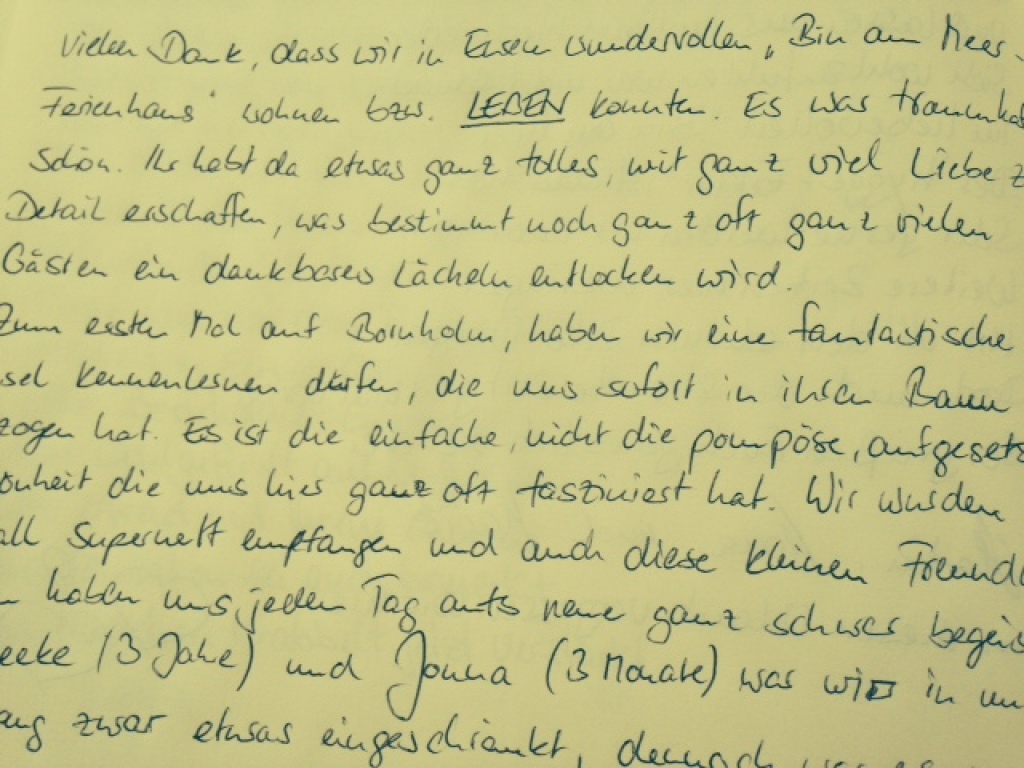 Vielen Dank, dass wir in Eurem wundervollen „Bin am Meer-
Ferienhaus" wohnen bzw. LEBEN konnten. Es war traumha
schön. Ihr habt da etwas ganz tolles, mit ganz viel Liebe z
Detail erschaffen, was bestimmt noch ganz oft ganz vielen
Gästen ein dankbares Lächeln entlocken wird.
Zum ersten Mal auf Bornholm, haben wir eine fantastische
sel kennenlernen dürfen, die uns sofort in ihren Bann
zogen hat. Es ist die einfache, nicht die pompöse, aufgesetz
önheit die uns hier ganz oft fasziniert hat. Wir wurden
all supernett empfangen und auch diese kleinen Freundl
n haben uns jeden Tag aufs neue ganz schwer begeis
eeke (3 Jahre) und Jonna (3 Monate) war wir in un
ang zwar etwas eingeschränkt, dennoch